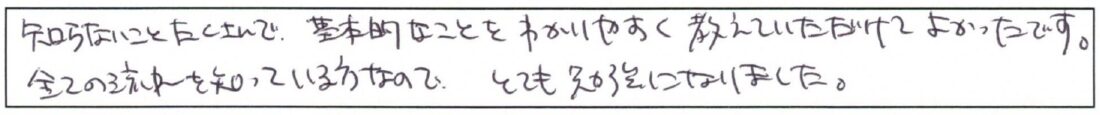 知らないことたくさんで、基本的なことをわかりやすく教えていただけてよかったです。
全ての流れを知っている方なので、とても勉強になりました。